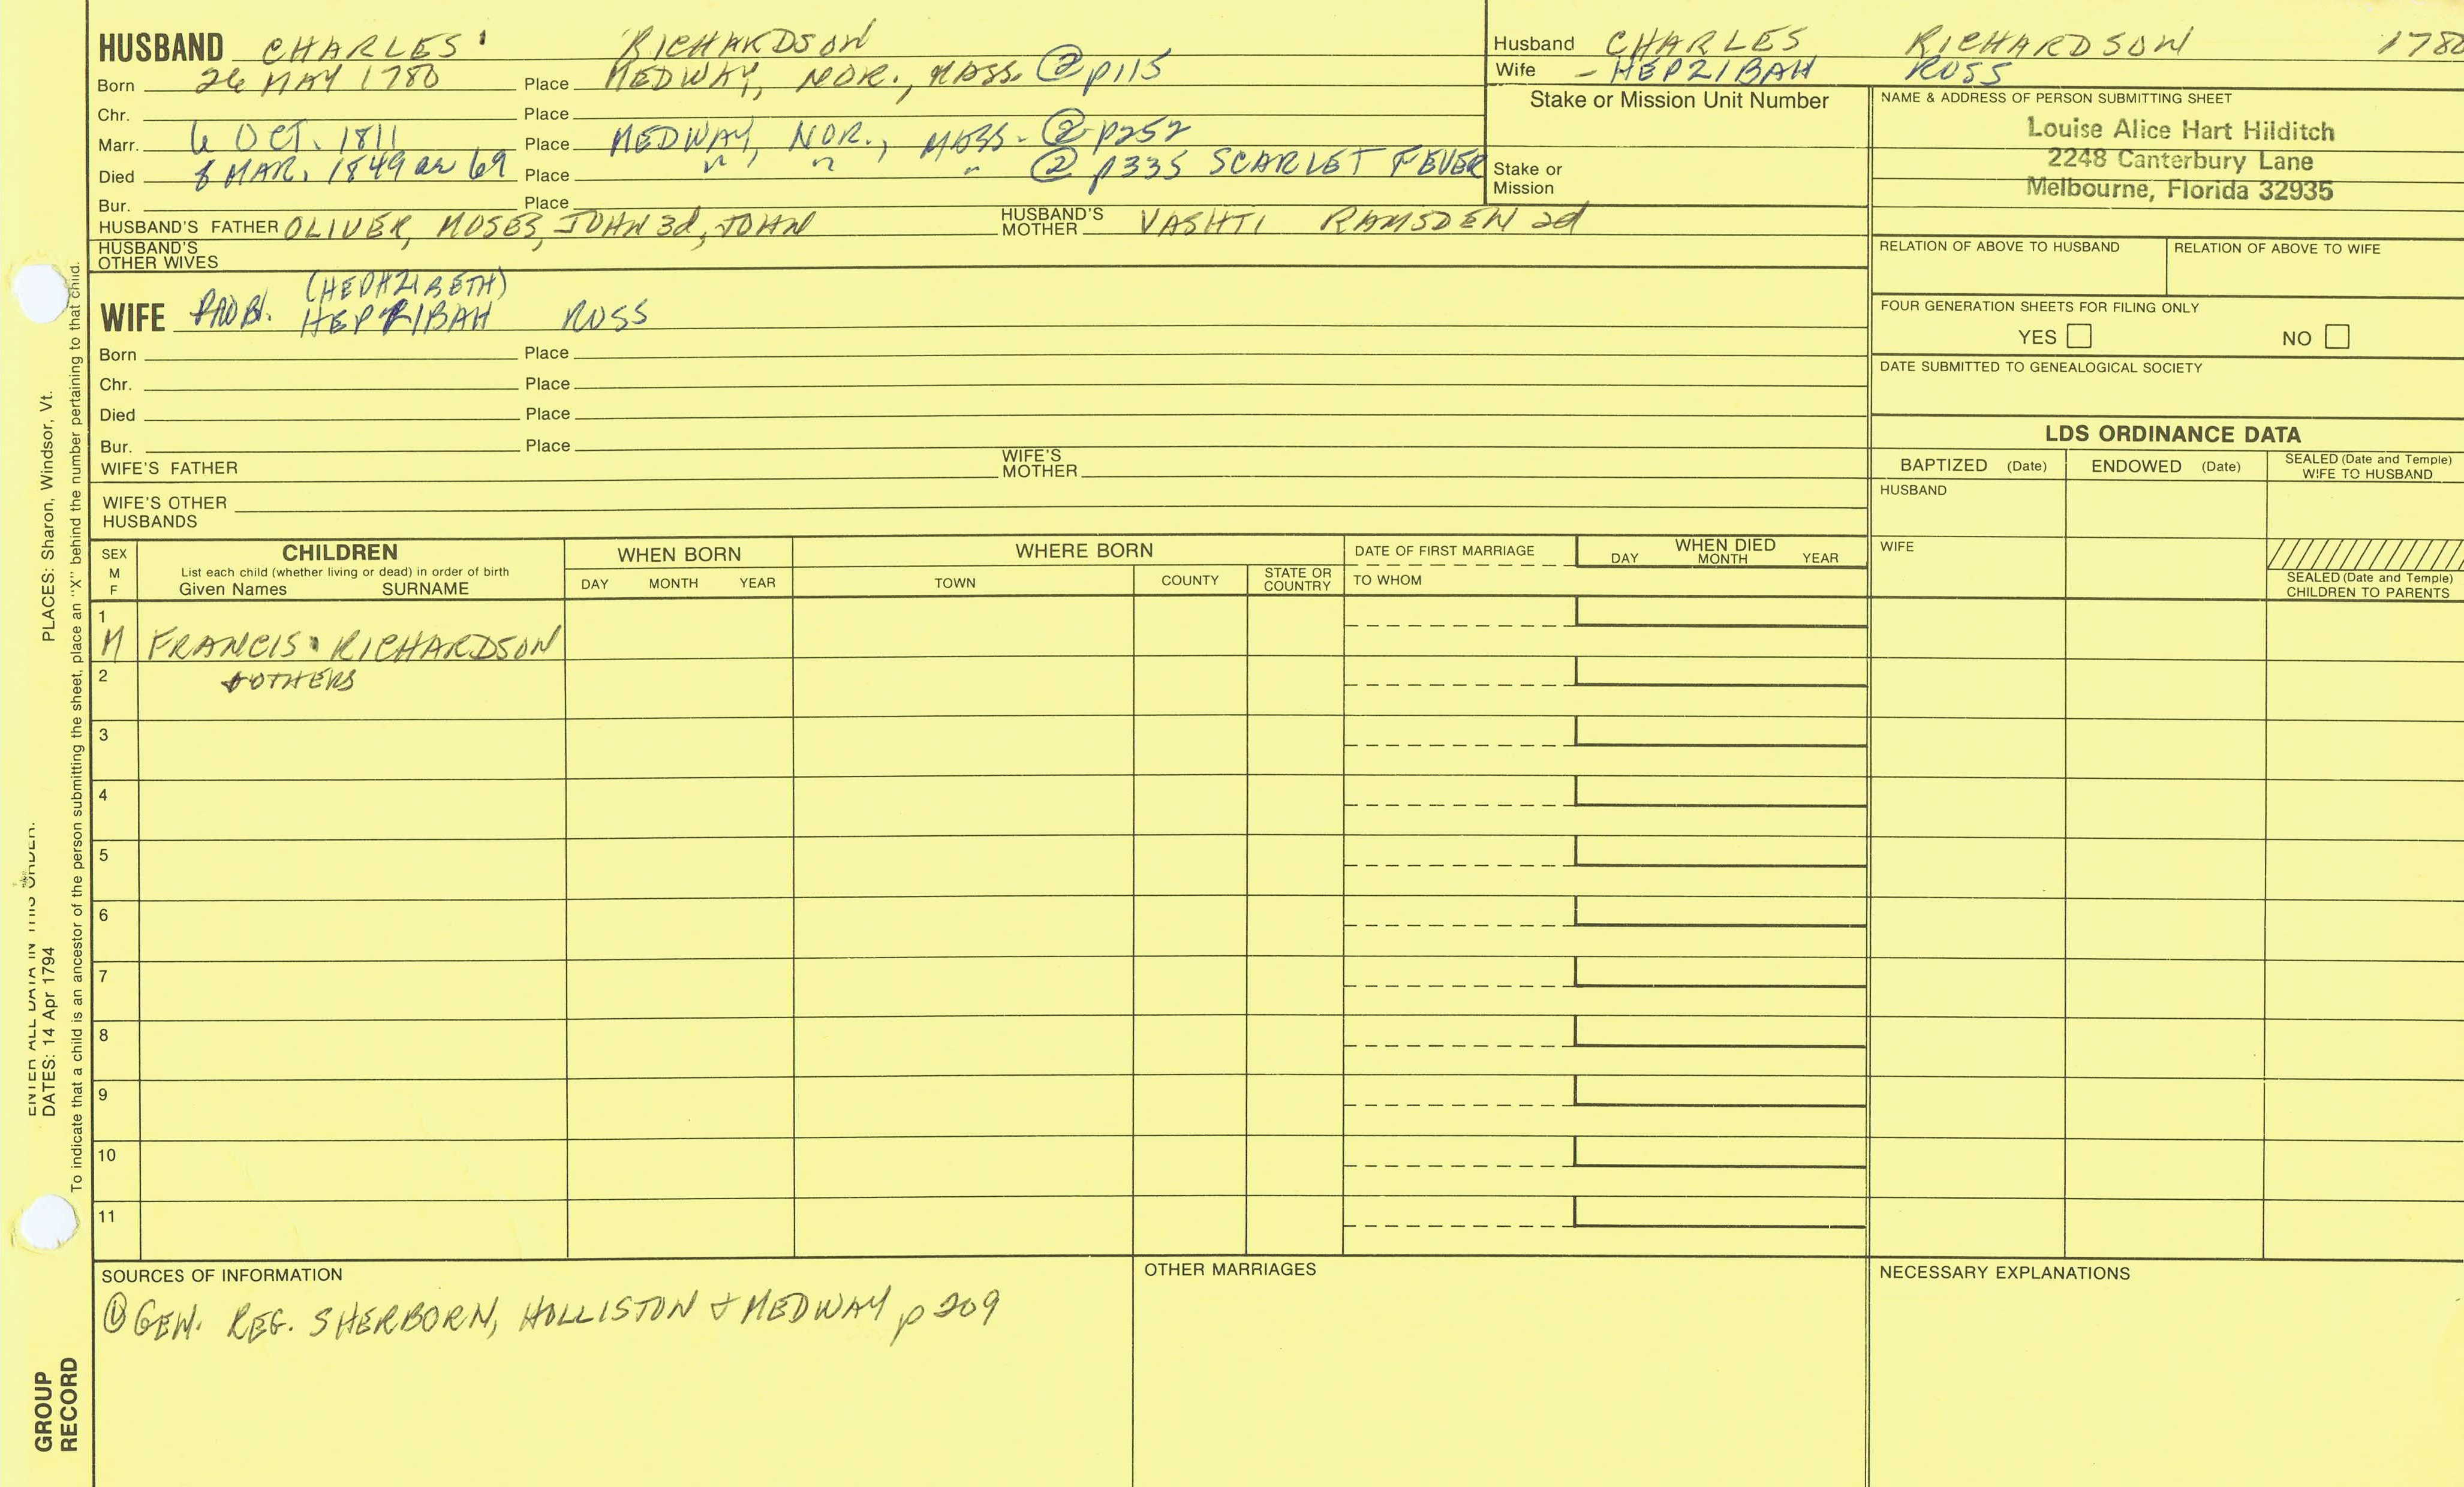 HUSBAND CHARLES RICHARDSON
Born 26 MAY 1780 Place MEDWAY, NOR., MASS. @ p115
Chr. Place
Marr. 6 OCT. 1811 Place MEDWAY, NOR., MASS. @ p252
Died 8 MAR. 1849 ae 69 Place " " " @ p335 SCARLET FEVER
Bur. Place
HUSBAND'S FATHER OLIVER, MOSES, JOHN 3d, JOHN HUSBAND'S MOTHER VASHTI RAMSDEN 2d
HUSBAND'S OTHER WIVES
(HEPHZIBETH)
WIFE PROB. HEPZIBAH ROSS
Born Place
Chr. Place
Died Place
Bur. Place
WIFE'S FATHER WIFE'S MOTHER
WIFE'S OTHER HUSBANDS
Husband CHARLES RICHARDSON 1780
Wife - HEPZIBAH ROSS
Stake or Mission Unit Number
Stake or Mission
NAME & ADDRESS OF PERSON SUBMITTING SHEET
Louise Alice Hart Hilditch
2248 Canterbury Lane
Melbourne, Florida 32935
RELATION OF ABOVE TO HUSBAND RELATION OF ABOVE TO WIFE
FOUR GENERATION SHEETS FOR FILING ONLY
YES NO
DATE SUBMITTED TO GENEALOGICAL SOCIETY
LDS ORDINANCE DATA
BAPTIZED (Date) ENDOWED (Date) SEALED (Date and Temple) WIFE TO HUSBAND
HUSBAND
WIFE
SEALED (Date and Temple) CHILDREN TO PARENTS
SEX M F CHILDREN WHEN BORN WHERE BORN DATE OF FIRST MARRIAGE WHEN DIED
List each child (whether living or dead) in order of birth
Given Names SURNAME DAY MONTH YEAR TOWN COUNTY STATE OR COUNTRY TO WHOM DAY MONTH YEAR
1 M FRANCIS RICHARDSON
2 + OTHERS
3
4
5
6
7
8
9
10
11
SOURCES OF INFORMATION
① GEN. REG. SHERBORN, HOLLISTON & MEDWAY p 209
OTHER MARRIAGES
NECESSARY EXPLANATIONS
ENTER ALL DATA IN THIS ORDER:
DATES: 14 Apr 1794 PLACES: Sharon, Windsor, Vt.
To indicate that a child is an ancestor of the person submitting the sheet, place an "X" behind the number pertaining to that child.
GROUP
RECORD